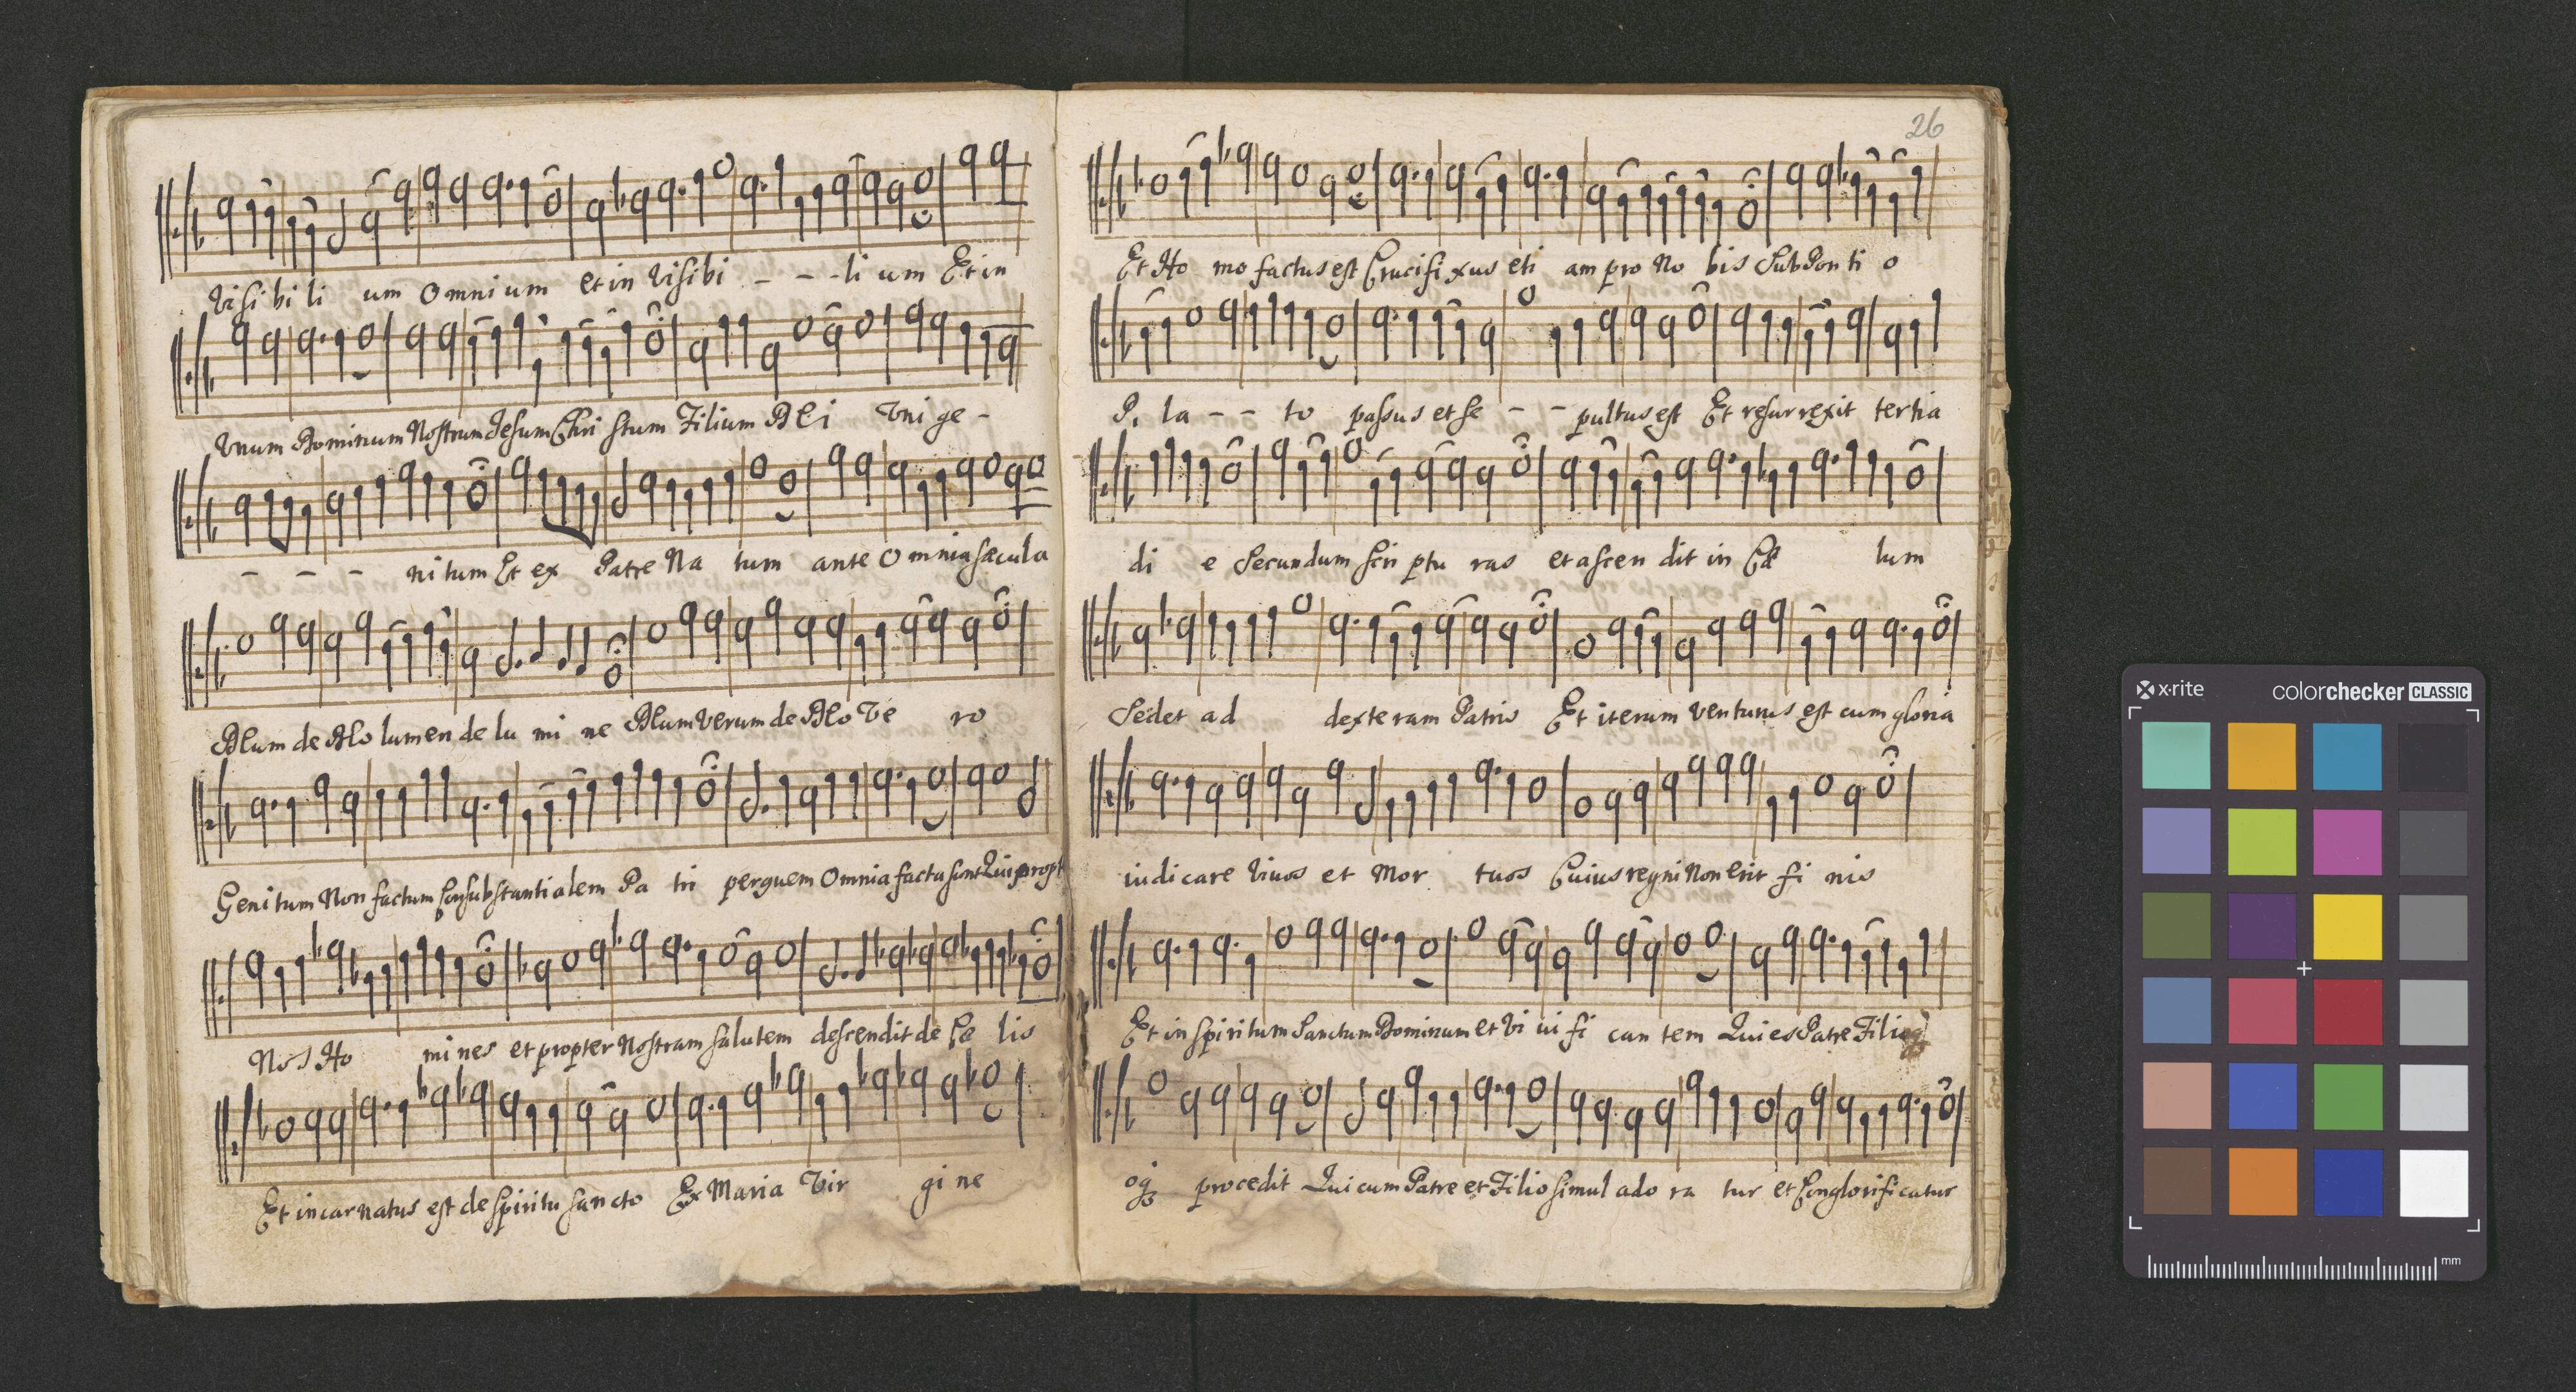 Visibili um Omnium et in Visibi - - - li um Et in
Vnum Dominum Nostrum Jesum Chri stum Filium DEi Vni ge -
- - - ni tum Et ex Patre Na tum ante Omnia sæcula
DEum de DEo lumen de lu mi ne DEum Verum de DEo Ve ro
Genitum Non factum Consubstantialem Pa tri per quem Omnia facta sunt Qui propt
Nos Ho mi nes et propter Nostram salutem descendit de Cæ lis
Et incarnatus est de Spiritu Sancto Ex Maria Vir gi ne
26
Et Ho mo factus est Crucifi xus eti am pro No bis Sub Pon ti o
Pi la - - to passus et se - - pultus est Et resurrexit tertia
di e Secundum Scri ptu ras et ascen dit in Cæ lum
Sedet ad dexteram Patris Et iterum venturus est cum gloria
iudicare Vivos et Mor tuos Cuius regni Non erit fi nis
Et in Spiritum Sanctum Dominum et Vi vi fi can tem Qui ex Patre Filio
oq procedit Qui cum Patre et Filio simul ado ra tur et Conglorificatur
x·rite
colorchecker CLASSIC
mm